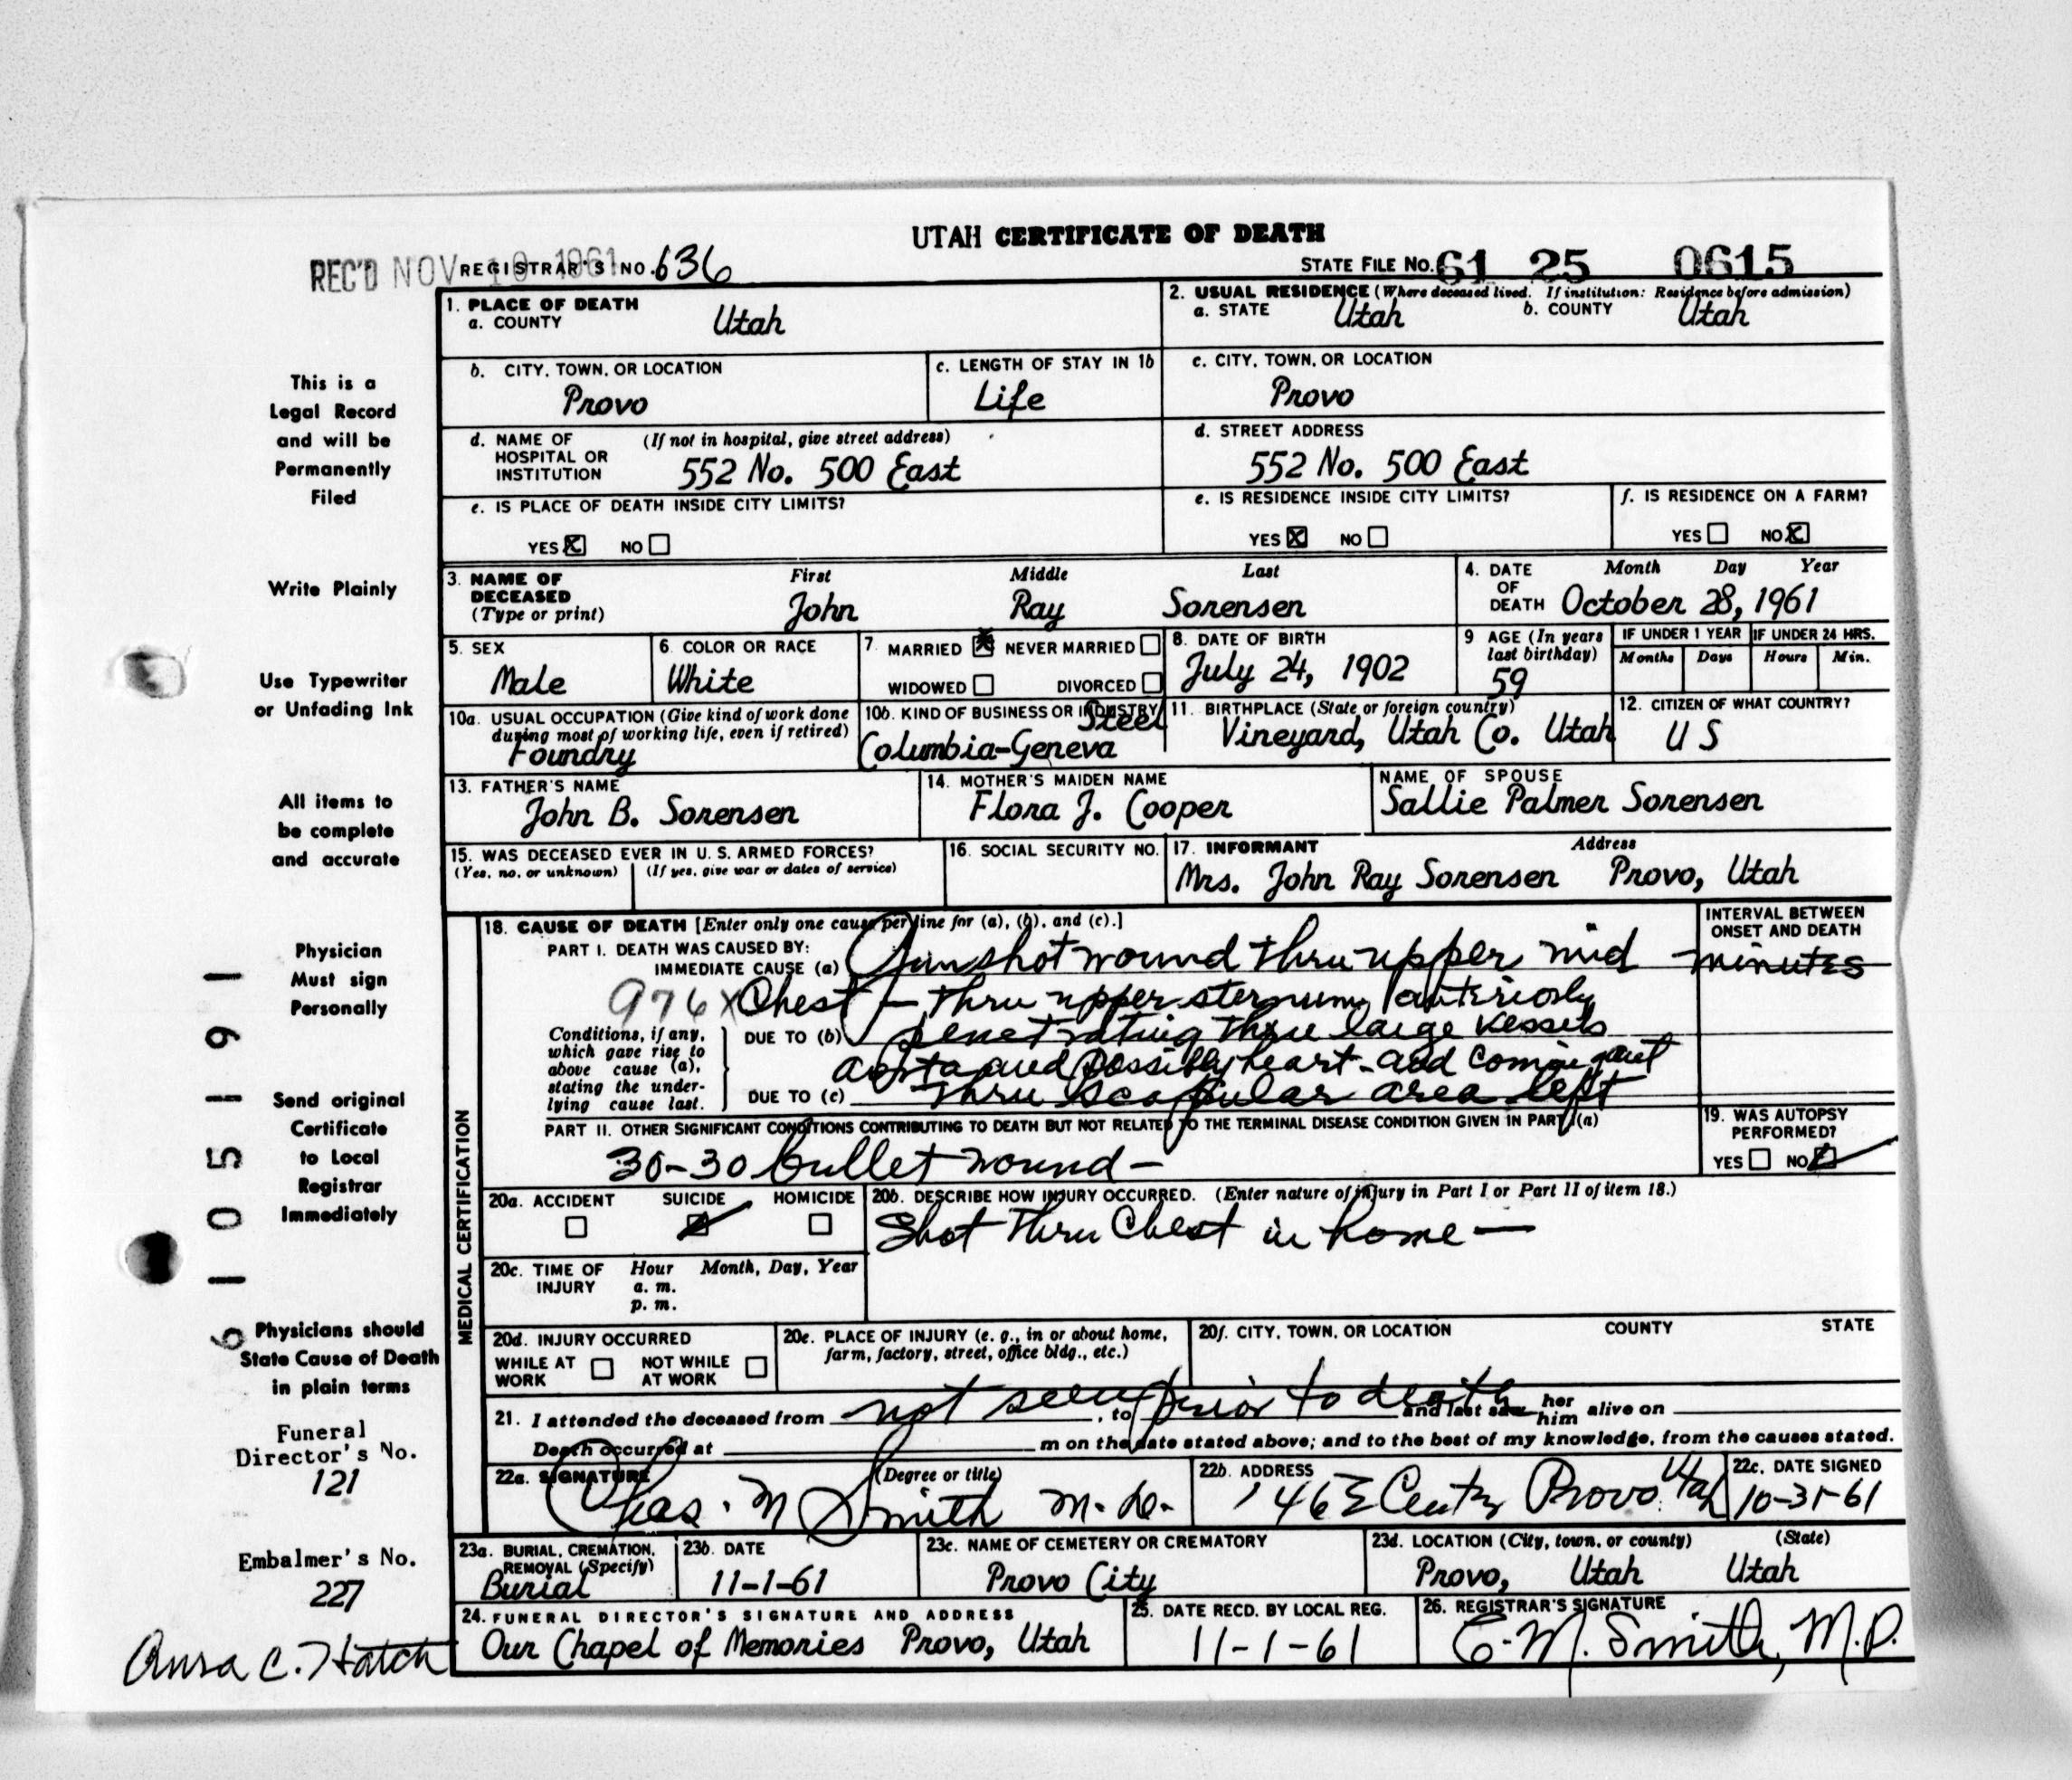 UTAH CERTIFICATE OF DEATH
REC'D NOV 10 1961 REGISTRAR'S NO. 636
STATE FILE NO. 61 25 0615
1. PLACE OF DEATH
a. COUNTY Utah
2. USUAL RESIDENCE (Where deceased lived. If institution: Residence before admission)
a. STATE Utah b. COUNTY Utah
b. CITY, TOWN, OR LOCATION
Provo
c. LENGTH OF STAY IN 1b
Life
c. CITY, TOWN, OR LOCATION
Provo
d. NAME OF HOSPITAL OR INSTITUTION (If not in hospital, give street address)
552 No. 500 East
d. STREET ADDRESS
552 No. 500 East
e. IS PLACE OF DEATH INSIDE CITY LIMITS?
YES X NO
e. IS RESIDENCE INSIDE CITY LIMITS?
YES X NO
f. IS RESIDENCE ON A FARM?
YES NO X
3. NAME OF DECEASED (Type or print)
First Middle Last
John Ray Sorensen
4. DATE OF DEATH Month Day Year
October 28, 1961
5. SEX
Male
6. COLOR OR RACE
White
7. MARRIED X NEVER MARRIED
WIDOWED DIVORCED
8. DATE OF BIRTH
July 24, 1902
9 AGE (In years last birthday)
59
IF UNDER 1 YEAR IF UNDER 24 HRS.
Months Days Hours Min.
10a. USUAL OCCUPATION (Give kind of work done during most of working life, even if retired)
Foundry
10b. KIND OF BUSINESS OR INDUSTRY
Columbia-Geneva Steel
11. BIRTHPLACE (State or foreign country)
Vineyard, Utah Co. Utah
12. CITIZEN OF WHAT COUNTRY?
U S
13. FATHER'S NAME
John B. Sorensen
14. MOTHER'S MAIDEN NAME
Flora J. Cooper
NAME OF SPOUSE
Sallie Palmer Sorensen
15. WAS DECEASED EVER IN U. S. ARMED FORCES?
(Yes, no, or unknown) (If yes, give war or dates of service)
16. SOCIAL SECURITY NO.
17. INFORMANT Address
Mrs. John Ray Sorensen Provo, Utah
MEDICAL CERTIFICATION
18. CAUSE OF DEATH [Enter only one cause per line for (a), (b), and (c).]
INTERVAL BETWEEN ONSET AND DEATH
PART I. DEATH WAS CAUSED BY:
IMMEDIATE CAUSE (a) Gunshot wound thru upper mid minutes
976X Chest - thru upper sternum, anteriorly
Conditions, if any, which gave rise to above cause (a), stating the underlying cause last.
DUE TO (b) penetrating thru large vessels
aorta and possibly heart - and coming out
DUE TO (c) thru scapular area left
PART II. OTHER SIGNIFICANT CONDITIONS CONTRIBUTING TO DEATH BUT NOT RELATED TO THE TERMINAL DISEASE CONDITION GIVEN IN PART I(a)
30-30 bullet wound -
19. WAS AUTOPSY PERFORMED?
YES NO
20a. ACCIDENT SUICIDE HOMICIDE
20b. DESCRIBE HOW INJURY OCCURRED. (Enter nature of injury in Part I or Part II of item 18.)
Shot thru Chest in home -
20c. TIME OF INJURY Hour Month, Day, Year
a. m.
p. m.
20d. INJURY OCCURRED
WHILE AT WORK NOT WHILE AT WORK
20e. PLACE OF INJURY (e. g., in or about home, farm, factory, street, office bldg., etc.)
20f. CITY, TOWN, OR LOCATION COUNTY STATE
21. I attended the deceased from not seen, to prior to death and last saw her him alive on
Death occurred at m on the date stated above; and to the best of my knowledge, from the causes stated.
22a. SIGNATURE (Degree or title)
Chas. M Smith M. D.
22b. ADDRESS
Provo Utah
22c. DATE SIGNED
10-31-61
23a. BURIAL, CREMATION, REMOVAL (Specify)
Burial
23b. DATE
11-1-61
23c. NAME OF CEMETERY OR CREMATORY
Provo City
23d. LOCATION (City, town, or county) (State)
Provo, Utah Utah
24. FUNERAL DIRECTOR'S SIGNATURE AND ADDRESS
Our Chapel of Memories Provo, Utah
25. DATE RECD. BY LOCAL REG.
11-1-61
26. REGISTRAR'S SIGNATURE
E. M. Smith, M.D.
This is a
Legal Record
and will be
Permanently
Filed
Write Plainly
Use Typewriter
or Unfading Ink
All items to
be complete
and accurate
Physician
Must sign
Personally
Send original
Certificate
to Local
Registrar
Immediately
Physicians should
State Cause of Death
in plain terms
Funeral
Director's No.
121
Embalmer's No.
227
C. Hatch
6 1 0 5 1 9 1